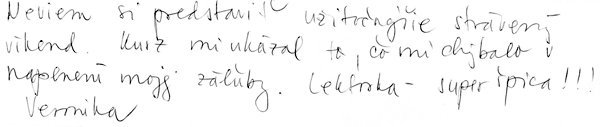 Neviem si predstaviť užitočnejšie strávený
víkend. Kurz mi ukázal to, čo mi chýbalo v
naplnení mojej záľuby. Lektorka - super špica!!!
Veronika